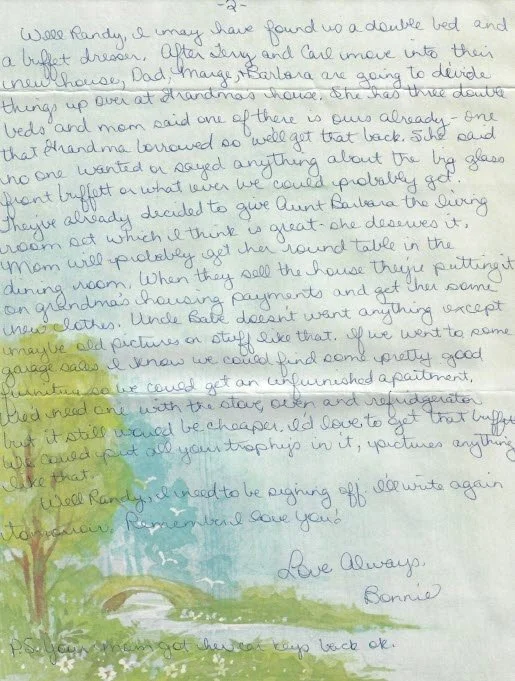 -2-
Well Randy, I may have found us a double bed and
a buffet dresser. After Terry and Carl move into their
new house, Dad, Marge & Barbara are going to divide
things up over at Grandma's house. She has three double
beds and mom said one of there is ours already - one
that Grandma borrowed so we'll get that back. She said
no one wanted or sayed anything about the big glass
front buffett or what ever we could probably get.
They've already decided to give Aunt Barbara the living
room set which I think is great - she deserves it.
Mom will probably get her round table in the
dining room. When they sell the house they're putting it
on grandma's housing payments and get her some
new clothes. Uncle Babe doesn't want anything except
maybe old pictures or stuff like that. If we went to some
garage sales I know we could find some pretty good
furnitur so we could get an unfurnished apartment.
We'd need one with the stove, oven and refridgerator
but it still would be cheaper. I'd love to get that buffet
we could put all your trophys in it, pictures anything
like that.
Well Randy, I need to be signing off. I'll write again
tomorrow. Remember I love you!
Love Always,
Bonnie
P.S. Your mom got her car keys back ok.